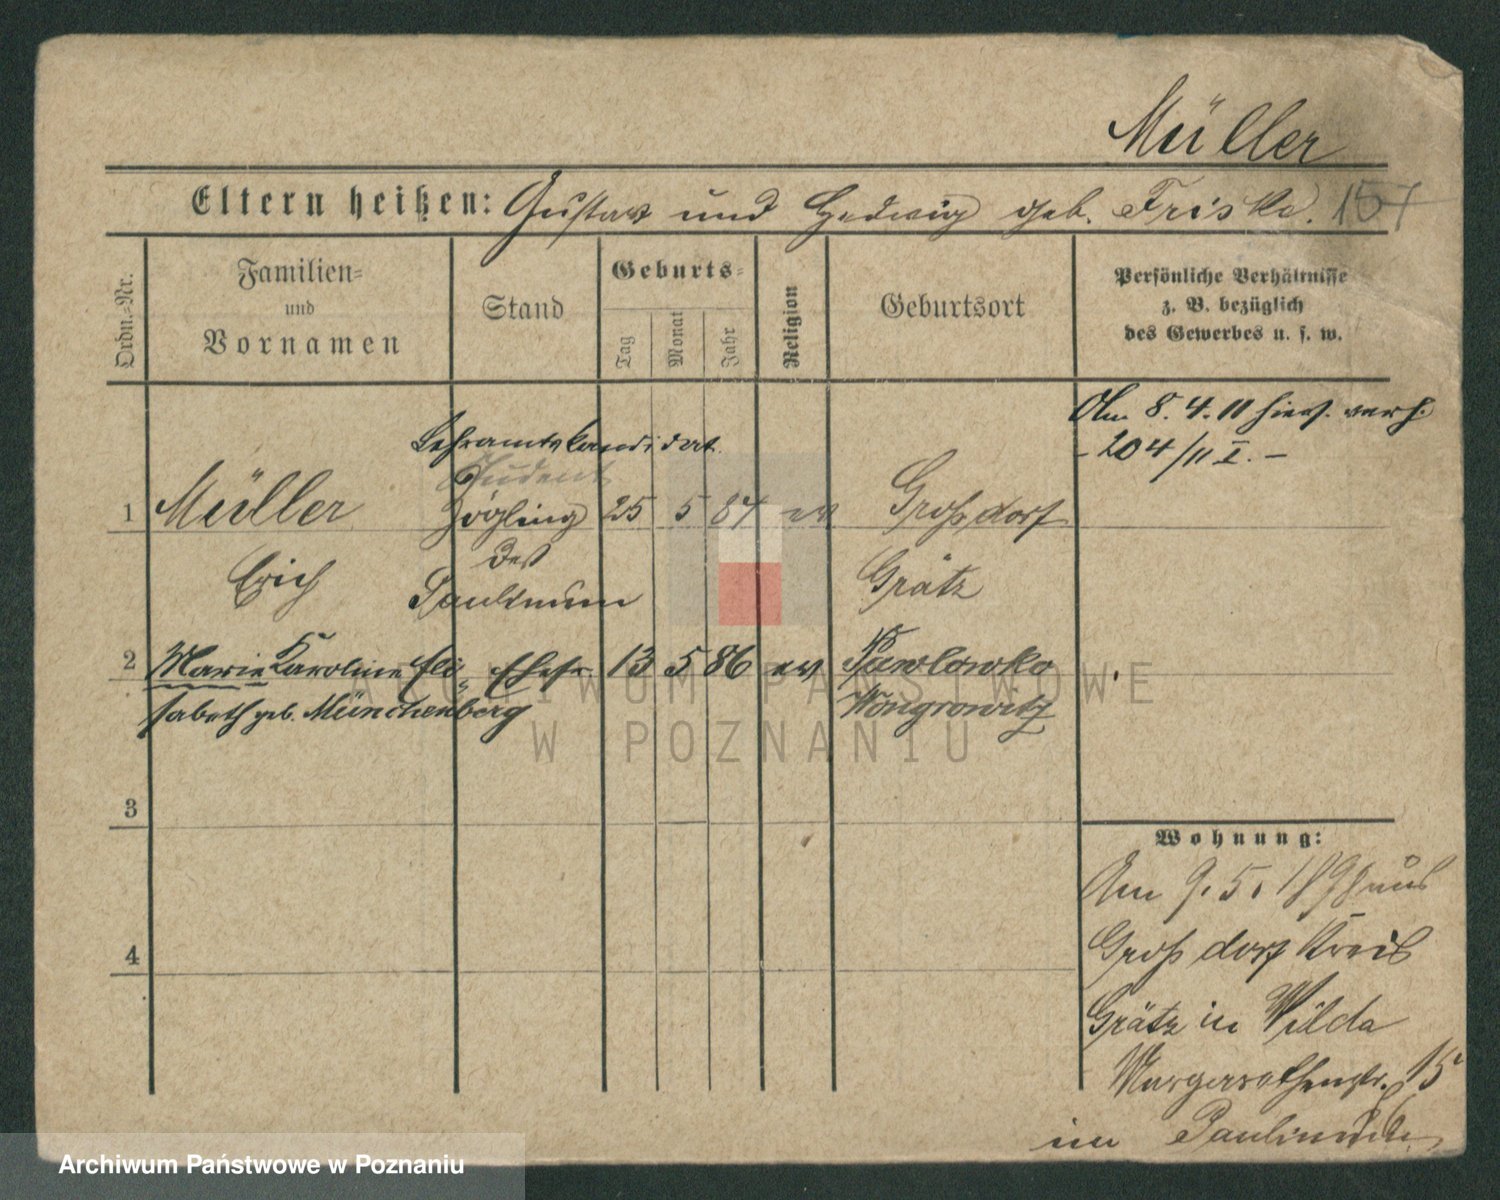 Müller
Eltern heißen: Gustav und Hedwig geb. Friske. 157
Ordn.-Nr.
Familien-
und
Vornamen
Stand
Geburts-
Tag
Monat
Jahr
Religion
Geburtsort
Persönliche Verhältnisse
z. B. bezüglich
des Gewerbes u. s. w.
Am 8. 4. 11 hier verh.
- 204/11 I. -
Lehramtskandidat
Student
1 Müller Zögling 25 5 84 ev Großdorf
Erich des Grätz
Paulinum
2 Marie Karoline Eli- Ehefr. 13 5 86 ev Pawlowko
sabeth geb. Münchenberg Wongrowitz
3
4
Wohnung:
Am 9. 5. 189 aus
Großdorf Kreis
Grätz in Wilda
Margarethenstr. 15
im Paulinum
ARCHIWUM PAŃSTWOWE
W POZNANIU
Archiwum Państwowe w Poznaniu